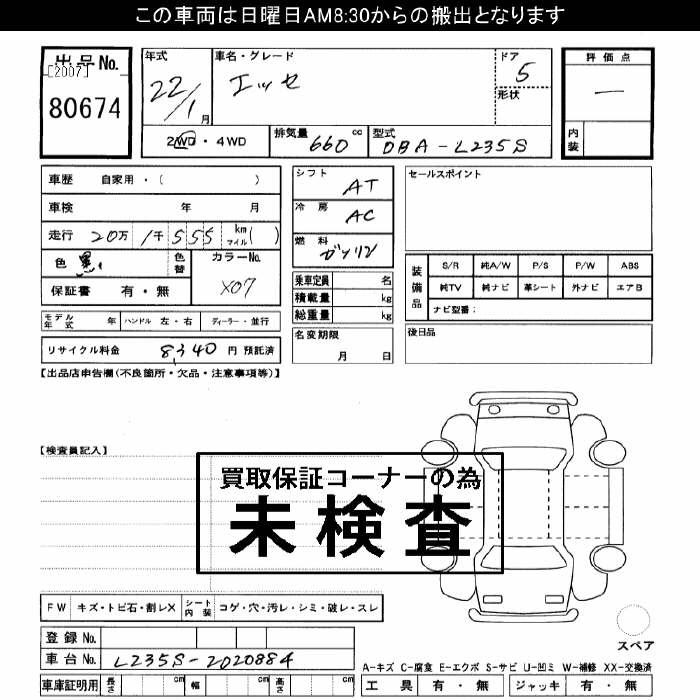 この車両は日曜日AM8:30からの搬出となります
出品No.
[2007]
80674
年式
22/1月
車名・グレード
エッセ
ドア
5
形状
評価点
―
内装
2WD・4WD
排気量 660 cc
型式 DBA-L235S
車歴 自家用・( )
車検 年 月
走行 20万 1千 5 5 5 km マイル ( )
色 黒
色替
カラーNo.
X07
保証書 有・無
シフト AT
冷房 AC
燃料 ガソリン
乗車定員 名
積載量 kg
総重量 kg
名変期限
月 日
セールスポイント
装備品
S/R 純A/W P/S P/W ABS
純TV 純ナビ 革シート 外ナビ エアB
ナビ型番:
後日品
モデル年式 年 ハンドル 左・右 ディーラー・並行
リサイクル料金 8,340 円 預託済
【出品店申告欄(不良箇所・欠品・注意事項等)】
【検査員記入】
買取保証コーナーの為
未検査
FW キズ・トビ石・割レX シート内装 コゲ・穴・汚レ・シミ・破レ・スレ
登録No.
車台No. L235S-2020884
車庫証明用 長さ cm 幅 cm 高さ cm
スペア
A-キズ C-腐食 E-エクボ S-サビ U-凹ミ W-補修 XX-交換済
工具 有・無 ジャッキ 有・無